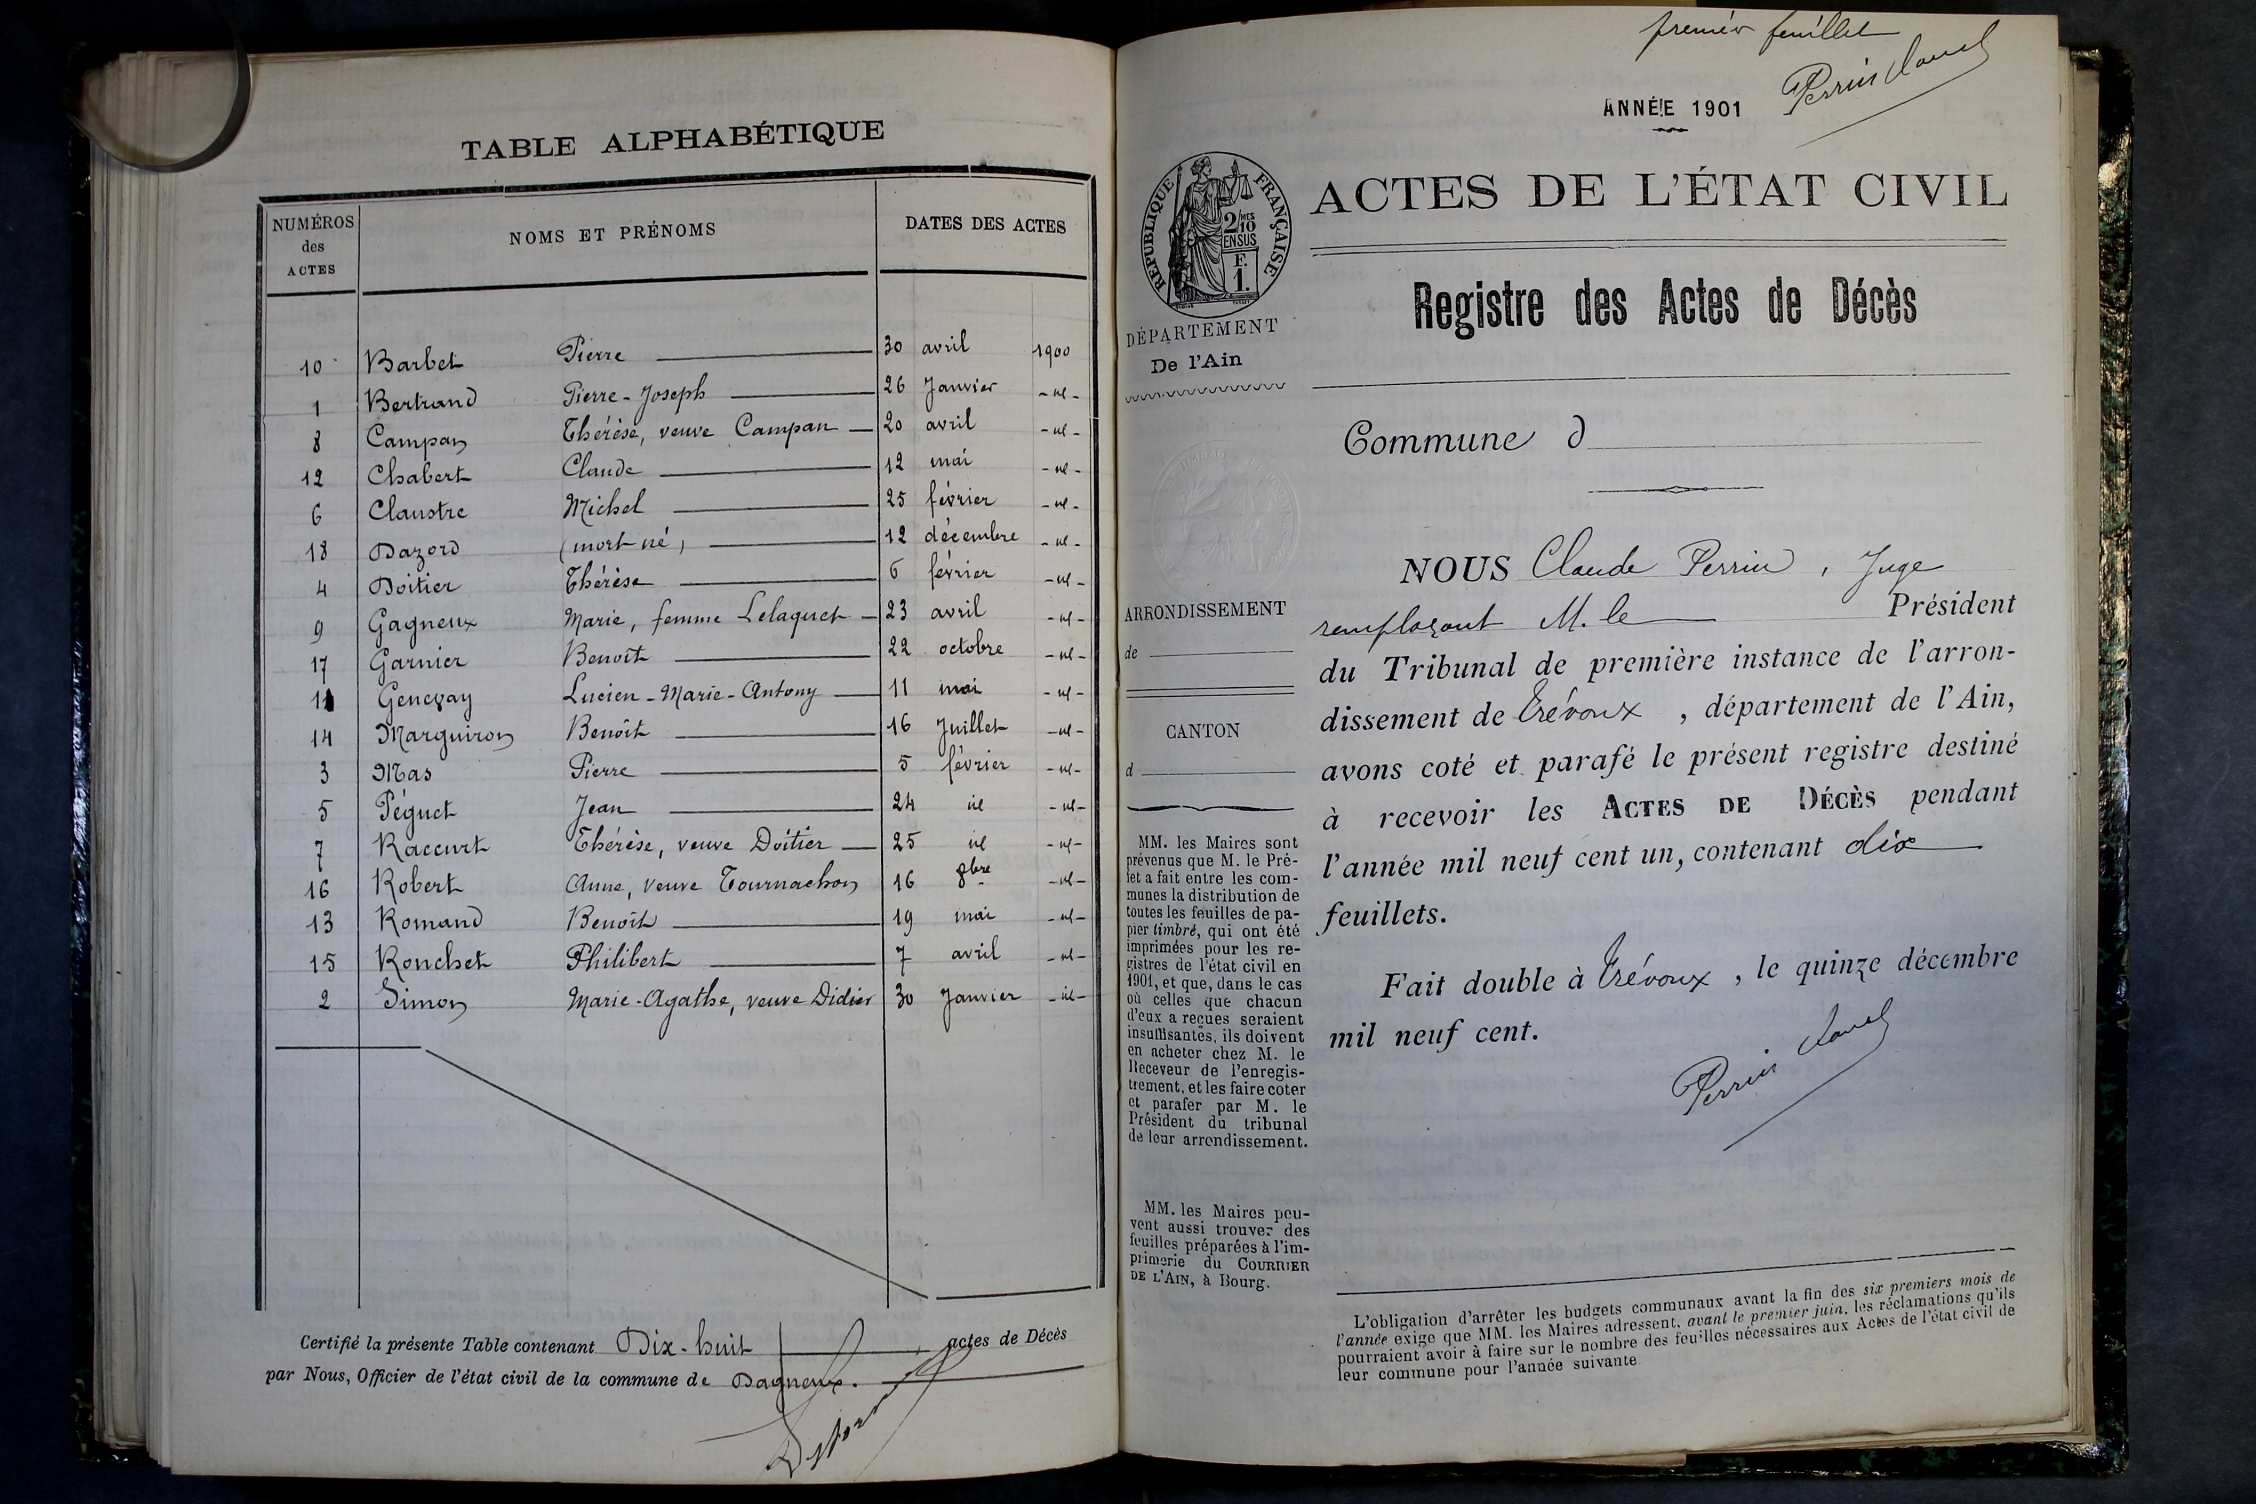 TABLE ALPHABÉTIQUE
NUMÉROS des ACTES NOMS ET PRÉNOMS DATES DES ACTES
10 Barbet Pierre 30 avril 1900
1 Bertrand Pierre-Joseph 26 Janvier - id -
8 Campan Thérèse, veuve Campan 20 avril - id -
12 Chabert Claude 12 mai - id -
6 Claustre Michel 25 février - id -
18 Dazord (mort né) 12 décembre - id -
4 Doitier Thérèse 6 février - id -
9 Gagneux Marie, femme Lelaquet 23 avril - id -
17 Garnier Benoît 22 octobre - id -
11 Genevay Lucien-Marie-Antony 11 mai - id -
14 Marguiron Benoît 16 Juillet - id -
3 Mas Pierre 5 février - id -
5 Péguet Jean 24 id - id -
7 Raccurt Thérèse, veuve Doitier 25 id - id -
16 Robert Anne, veuve Tournachon 16 8bre - id -
13 Romand Benoît 19 mai - id -
15 Ronchet Philibert 7 avril - id -
2 Simon Marie-Agathe, veuve Didier 30 Janvier - id -
Certifié la présente Table contenant Dix-huit, actes de Décès
par Nous, Officier de l'état civil de la commune de Dagneux.
premier feuillet
Perrin
ANNÉE 1901
RÉPUBLIQUE FRANÇAISE
2/10MES
EN SUS
F.
1.
DÉPARTEMENT
De l'Ain
ARRONDISSEMENT
de
CANTON
d
MM. les Maires sont
prévenus que M. le Pré-
fet a fait entre les com-
munes la distribution de
toutes les feuilles de pa-
pier timbré, qui ont été
imprimées pour les re-
gistres de l'état civil en
1901, et que, dans le cas
où celles que chacun
d'eux a reçues seraient
insuffisantes, ils doivent
en acheter chez M. le
Receveur de l'enregis-
trement, et les faire coter
et parafer par M. le
Président du tribunal
de leur arrondissement.
MM. les Maires peu-
vent aussi trouver des
feuilles préparées à l'im-
primerie du COURRIER
DE L'AIN, à Bourg.
ACTES DE L'ÉTAT CIVIL
Registre des Actes de Décès
Commune d
NOUS Claude Perrin, Juge
remplaçant M. le Président
du Tribunal de première instance de l'arron-
dissement de Trévoux, département de l'Ain,
avons coté et parafé le présent registre destiné
à recevoir les ACTES DE DÉCÈS pendant
l'année mil neuf cent un, contenant dix
feuillets.
Fait double à Trévoux, le quinze décembre
mil neuf cent.
Perrin
L'obligation d'arrêter les budgets communaux avant la fin des six premiers mois de
l'année exige que MM. les Maires adressent, avant le premier juin, les réclamations qu'ils
pourraient avoir à faire sur le nombre des feuilles nécessaires aux Actes de l'état civil de
leur commune pour l'année suivante